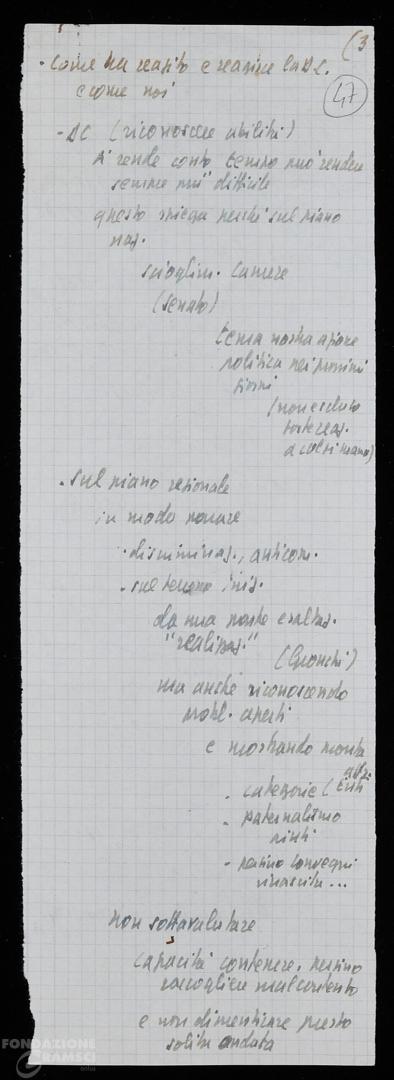 (3
47
- Come ha reagito e reagisce la D.C.
e come noi
- DC (riconoscere abilità)
si rende conto tempo può rendere
sempre più difficile
questo spiega perché sul piano
naz.
scioglim. Camere
(Senato)
tema nostra azione
politica nei prossimi
giorni
(non escluso
forte reaz.
- Sul piano regionale
in modo
- discriminaz., anticom.
- sul terreno iniz.
da una parte esaltaz.
"realizzaz."
(Gronchi)
ma anche riconoscendo
probl. aperti
e mostrando
- categorie
- paternalismo
- persino convegni
rinascita...
non sottovalutare
capacità contenere, persino
raccogliere malcontento
e non dimenticare presto
solita ondata
FONDAZIONE
GRAMSCI
onlus